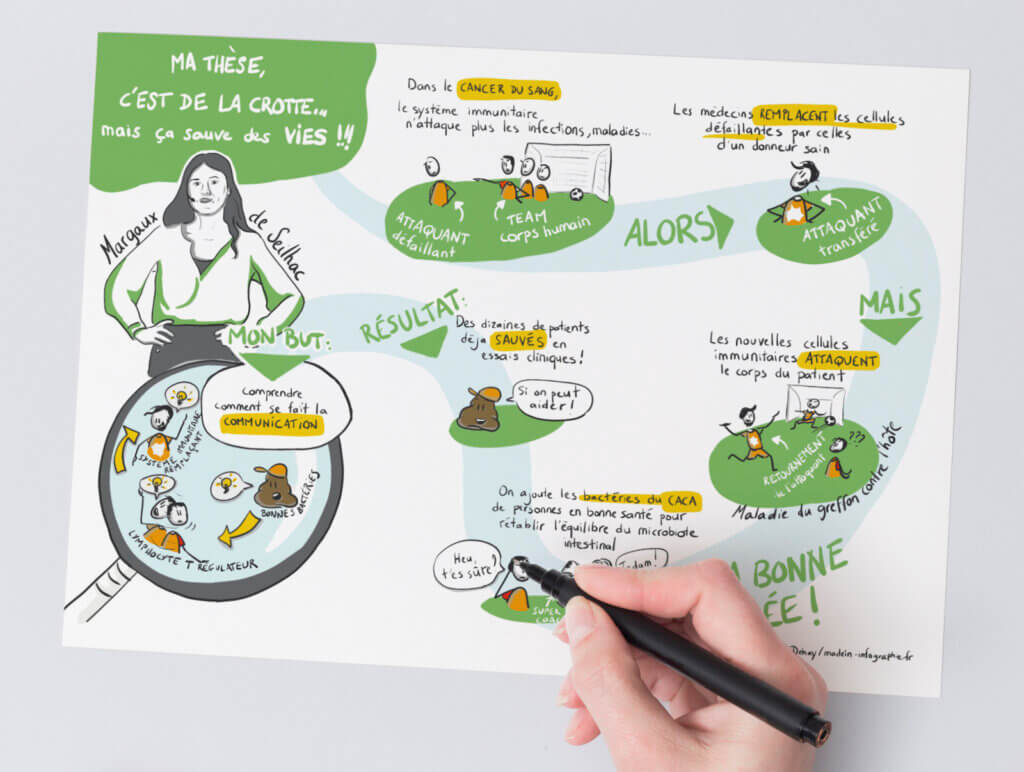 MA THÈSE,
C'EST DE LA CROTTE...
mais ça sauve des VIES !!!
Margaux de Seilhac
Dans le CANCER DU SANG,
le système immunitaire
n'attaque plus les infections, maladies...
ATTAQUANT
défaillant
TEAM
corps humain
ALORS
Les médecins REMPLACENT les cellules
défaillantes par celles
d'un donneur sain
ATTAQUANT
transféré
MAIS
Les nouvelles cellules
immunitaires ATTAQUENT
le corps du patient
???
RETOURNEMENT
de l'attaquant
Maladie du greffon contre l'hôte
BONNE
ÉE !
On ajoute les bactéries du CACA
de personnes en bonne santé pour
rétablir l'équilibre du microbiote
intestinal
Heu,
t'es sûre?
Tadam!
SUPER
COAC
RÉSULTAT:
Des dizaines de patients
déja SAUVÉS en
essais cliniques !
Si on peut
aider !
MON BUT:
Comprendre
comment se fait la
COMMUNICATION
SYSTÈME IMMUNITAIRE
REMPLAÇANT
BONNES BACTÉRIES
LYMPHOCYTE T RÉGULATEUR
/madein-infographie.fr